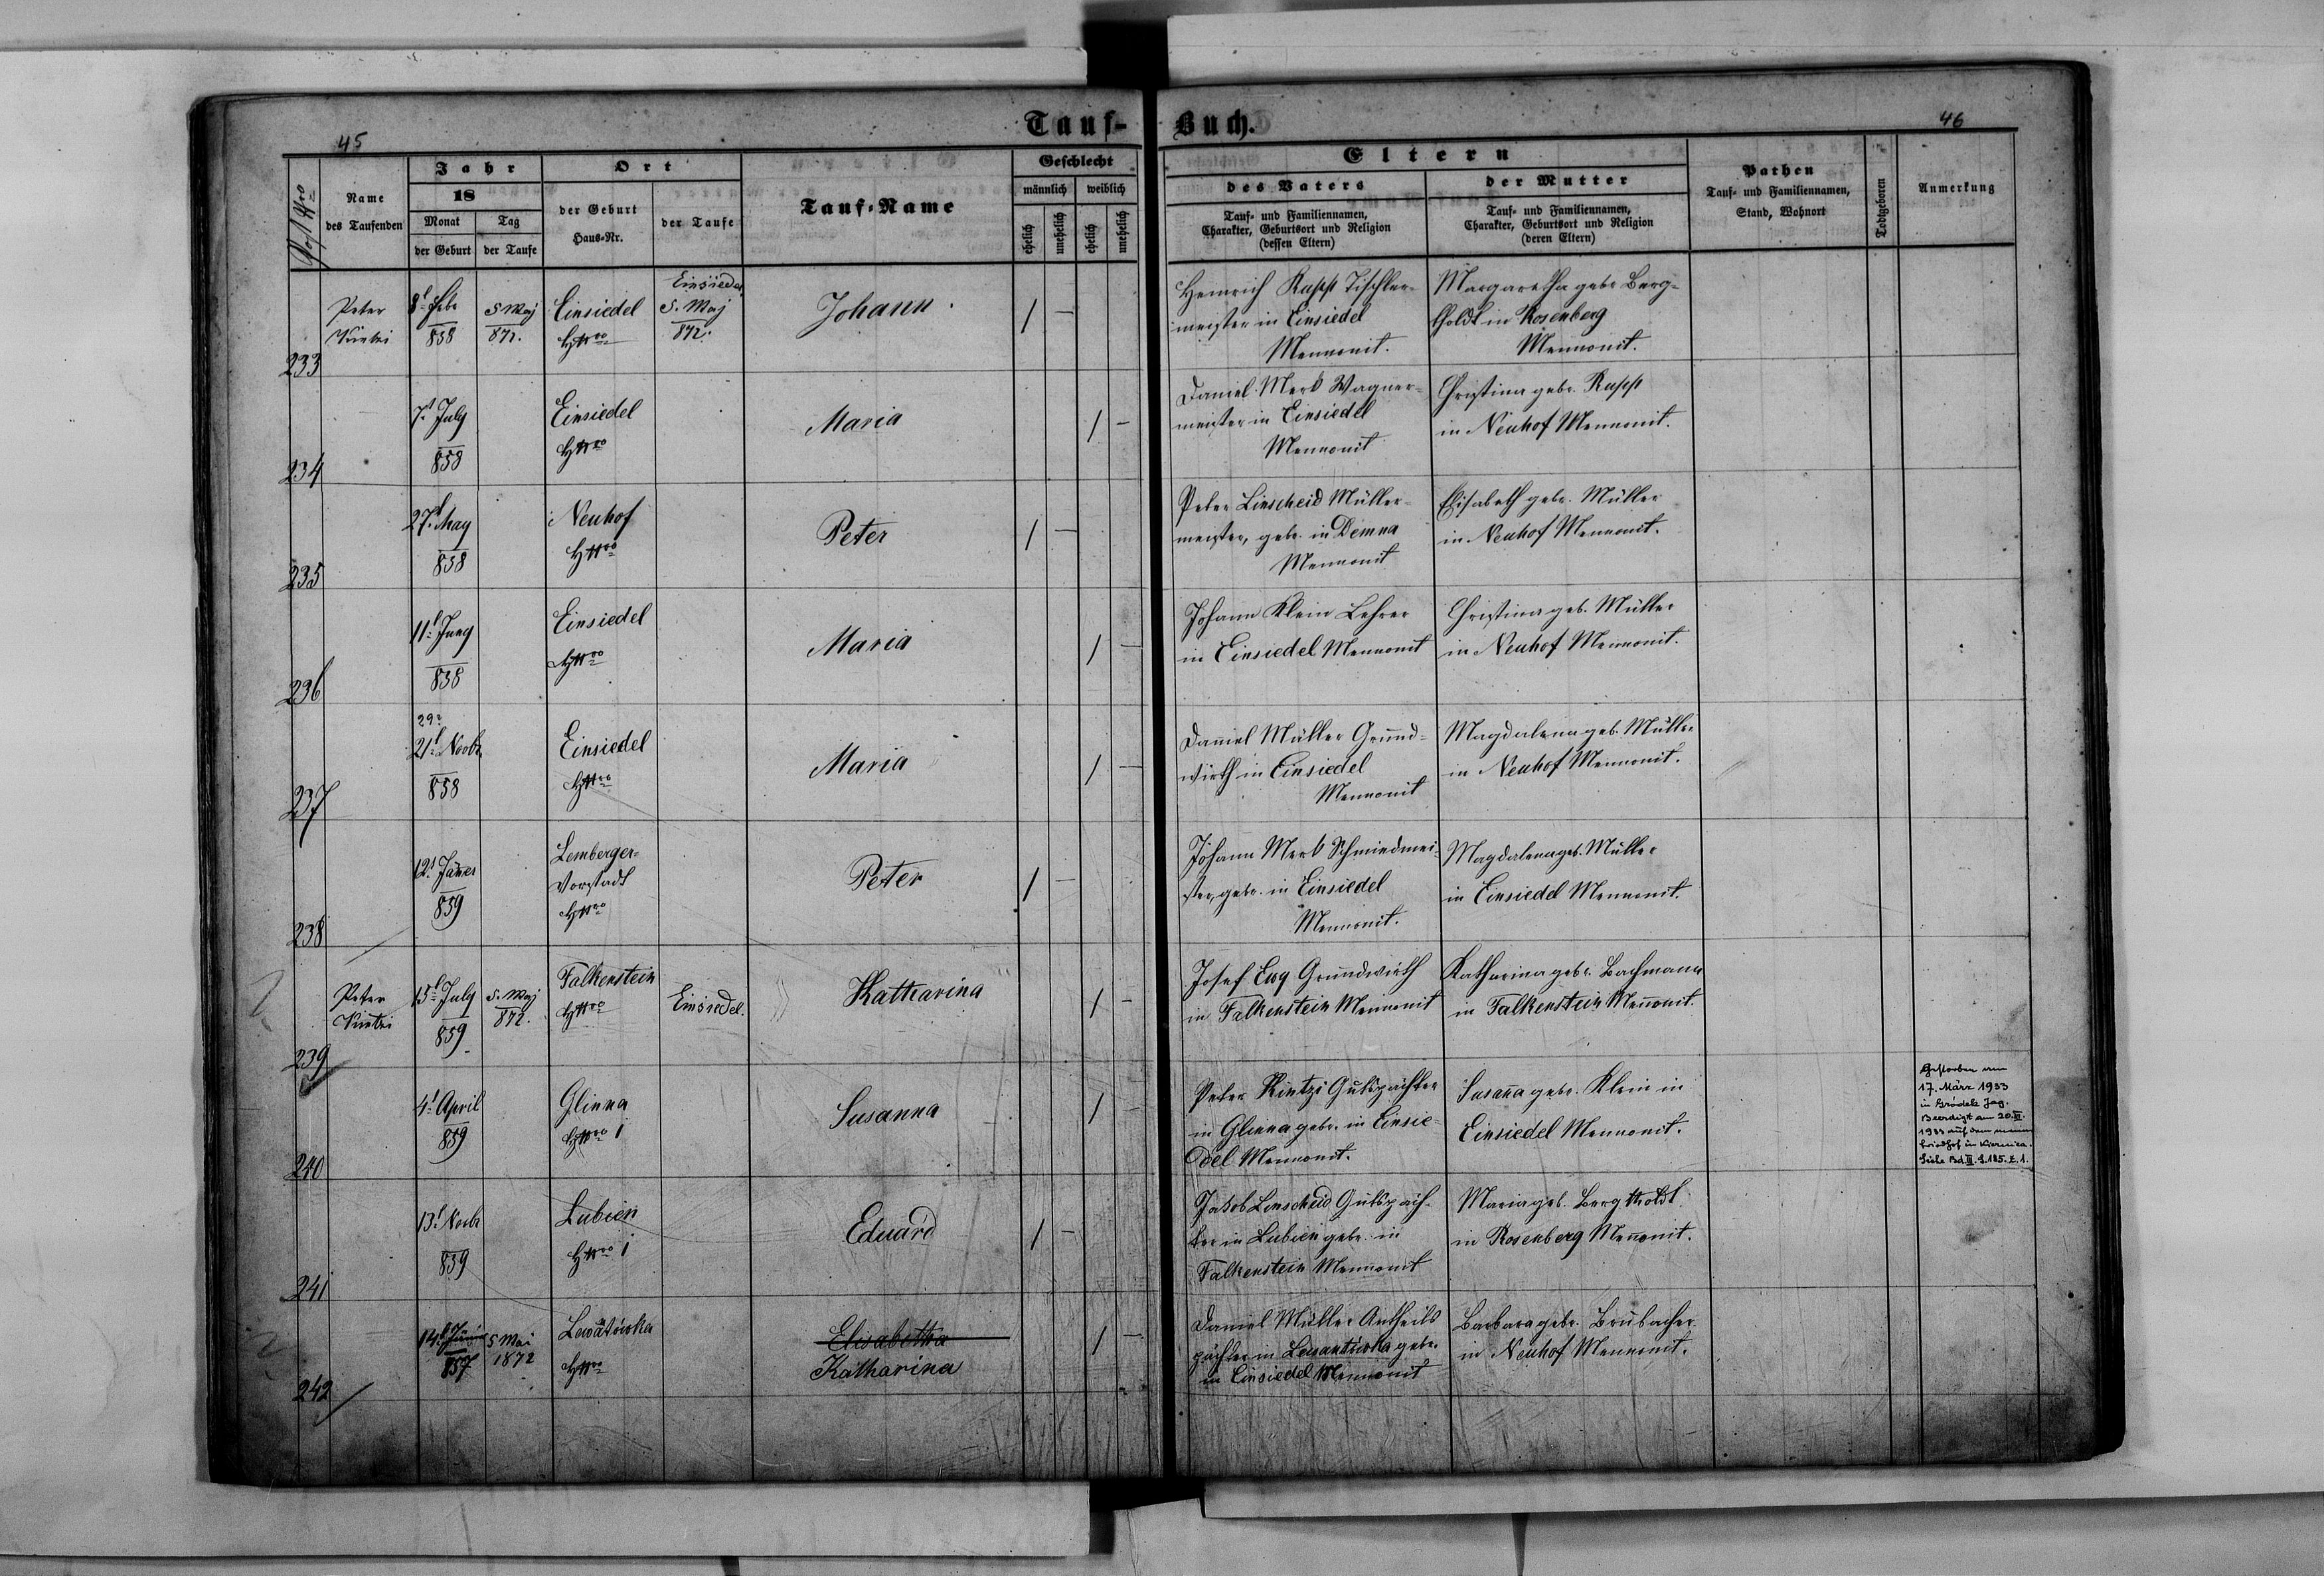 45
Tauf-
Buch.
46
Post Nro
Name
des Taufenden
Jahr
18
Monat
der Geburt
Tag
der Taufe
Ort
der Geburt
Haus-Nr.
der Taufe
Tauf-Name
Geschlecht
männlich
weiblich
ehelich
unehelich
ehelich
unehelich
Eltern
des Vaters
Tauf- und Familiennamen,
Charakter, Geburtsort und Religion
(dessen Eltern)
der Mutter
Tauf- und Familiennamen,
Charakter, Geburtsort und Religion
(deren Eltern)
Pathen
Tauf- und Familiennamen,
Stand, Wohnort
Todtgeboren
Anmerkung
233
Peter
Kintzi
8t Febr
858
5 Maj
872.
Einsiedel
HNro
Einsiedel
5. Maj
872.
Johann
1 –
Heinrich Rupp Tischler-
meister in Einsiedel
Mennonit.
Margaretha gebr Berg-
tholdt in Rosenberg
Mennonit.
234
7t July
858
Einsiedel
HNro
Maria
1 –
Daniel Merk Wagner-
meister in Einsiedel
Mennonit
Christina gebr. Rupp
in Neuhof Mennonit.
235
27t May
858
Neuhof
HNro
Peter
1 –
Peter Linscheid Müller-
meister, gebr. in Demna
Mennonit
Elisabeth gebr. Müller
in Neuhof Mennonit.
236
11t Juny
858
Einsiedel
HNro
Maria
1 –
Johann Klein Lehrer
in Einsiedel Mennonit
Christina geb. Müller
in Neuhof Mennonit.
237
29?
21t Novbr
858
Einsiedel
HNro
Maria
1 –
Daniel Müller Grund-
wirth in Einsiedel
Mennonit
Magdalena geb. Müller
in Neuhof Mennonit.
238
12t Jäner
859
Lemberger-
Vorstadt
HNro
Peter
1 –
Johann Merk Schmiedmei-
ster, gebr. in Einsiedel
Mennonit.
Magdalena geb. Müller
in Einsiedel Mennonit.
239
Peter
Kintzi
15t July
859
5. Maj
872.
Falkenstein
HNro
Einsiedel.
Katharina
1 –
Josef Ewy Grundwirth
in Falkenstein Mennonit
Katharina gebr. Bachmann
in Falkenstein Mennonit.
240
4t April
859
Glinna
HNro 1
Susanna
1 –
Peter Kintzi Gutspächter
in Glinna gebr. in Einsie-
del Mennonit.
Susana gebr. Klein in
Einsiedel Mennonit.
Gestorben am
17. März 1933
in Grodek Jag.
Beerdigt am 20.III.
1933 auf dem menn.
Friedhof in Kiernica.
Siehe Bd. III. S. 185. Z. 1.
241
13t Novbr
859
Lubien
HNro 1
Eduard
1 –
Jakob Linscheid Gutspäch-
ter in Lubien gebr. in
Falkenstein Mennonit
Maria geb. Bergtholdt
in Rosenberg Mennonit.
242
14t
857
5 Mai
1872
Lewantówka
HNro
Elisabetha
Katharina
1 –
Daniel Müller Antheils
pächter in Lewantówka gebr.
in Einsiedel Mennonit
Barbara gebr. Brubacher
in Neuhof Mennonit.